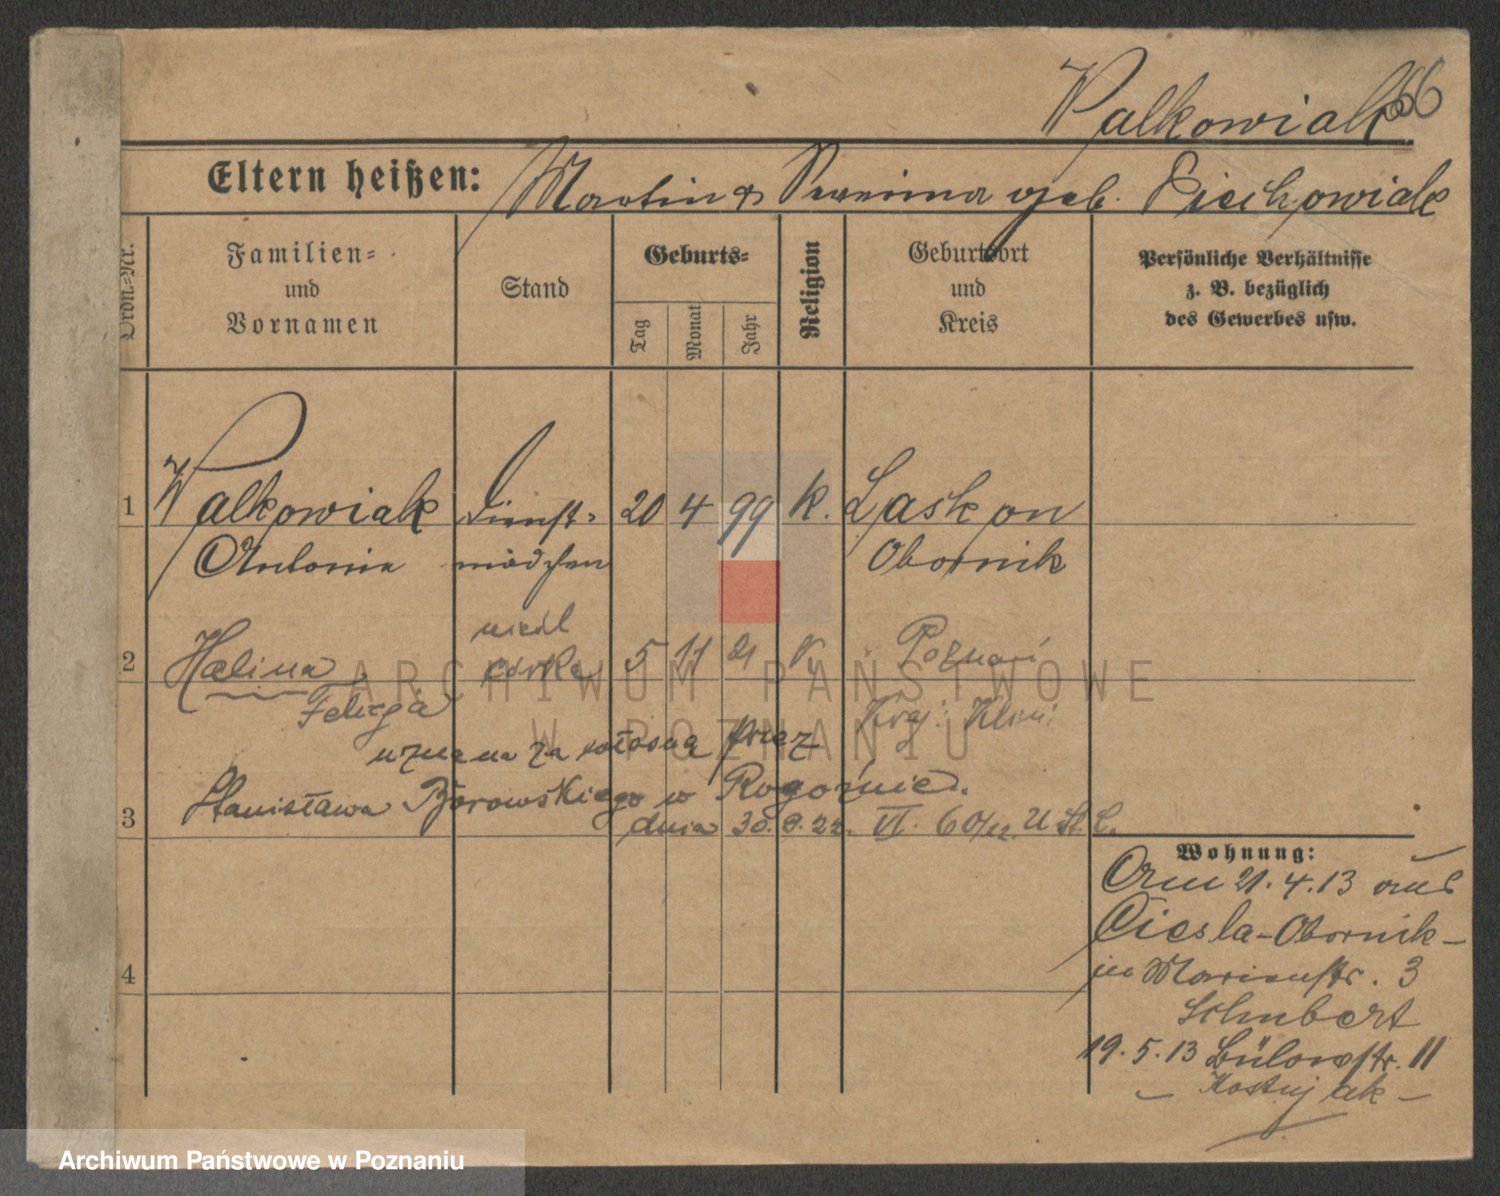 66
Walkowiak
Eltern heißen: Martin & geb. Piechowiak
Ordn.-Nr.
Familien- und Vornamen
Stand
Geburts-
Tag
Monat
Jahr
Religion
Geburtsort und Kreis
Persönliche Verhältnisse
z. B. bezüglich
des Gewerbes usw.
1 Walkowiak Dienst- 20 4 99 k. Laskon
Antonie mädchen Obornik
nieśl
2 Halina córka 5 11 21 k Poznań
Felicja
uznana za własną przez
Stanisława Borowskiego w Rogoźnie.
3 dnia 30. 9. 22. VI. 60/22. U. St. C.
Wohnung:
Am 21. 4. 13 aus
Ciesla-Obornik-
in Marienstr. 3
Schubert
19. 5. 13 Bülowstr. 11
4
ARCHIWUM PAŃSTWOWE
W POZNANIU
Archiwum Państwowe w Poznaniu